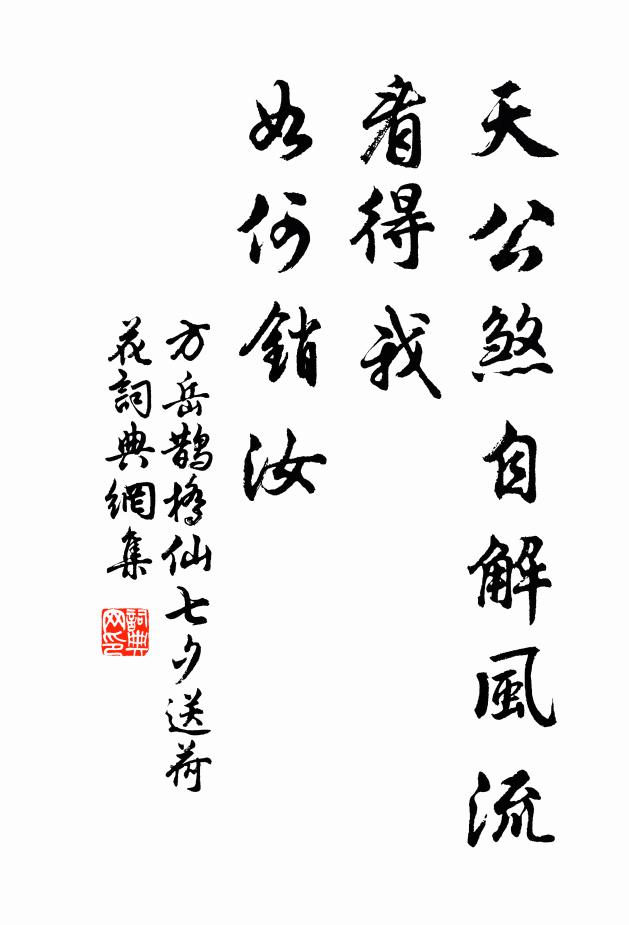 天公煞自解風流
看得我
如何銷汝
方岳鵲橋仙七夕送荷
花詞典網集
詞典
网印